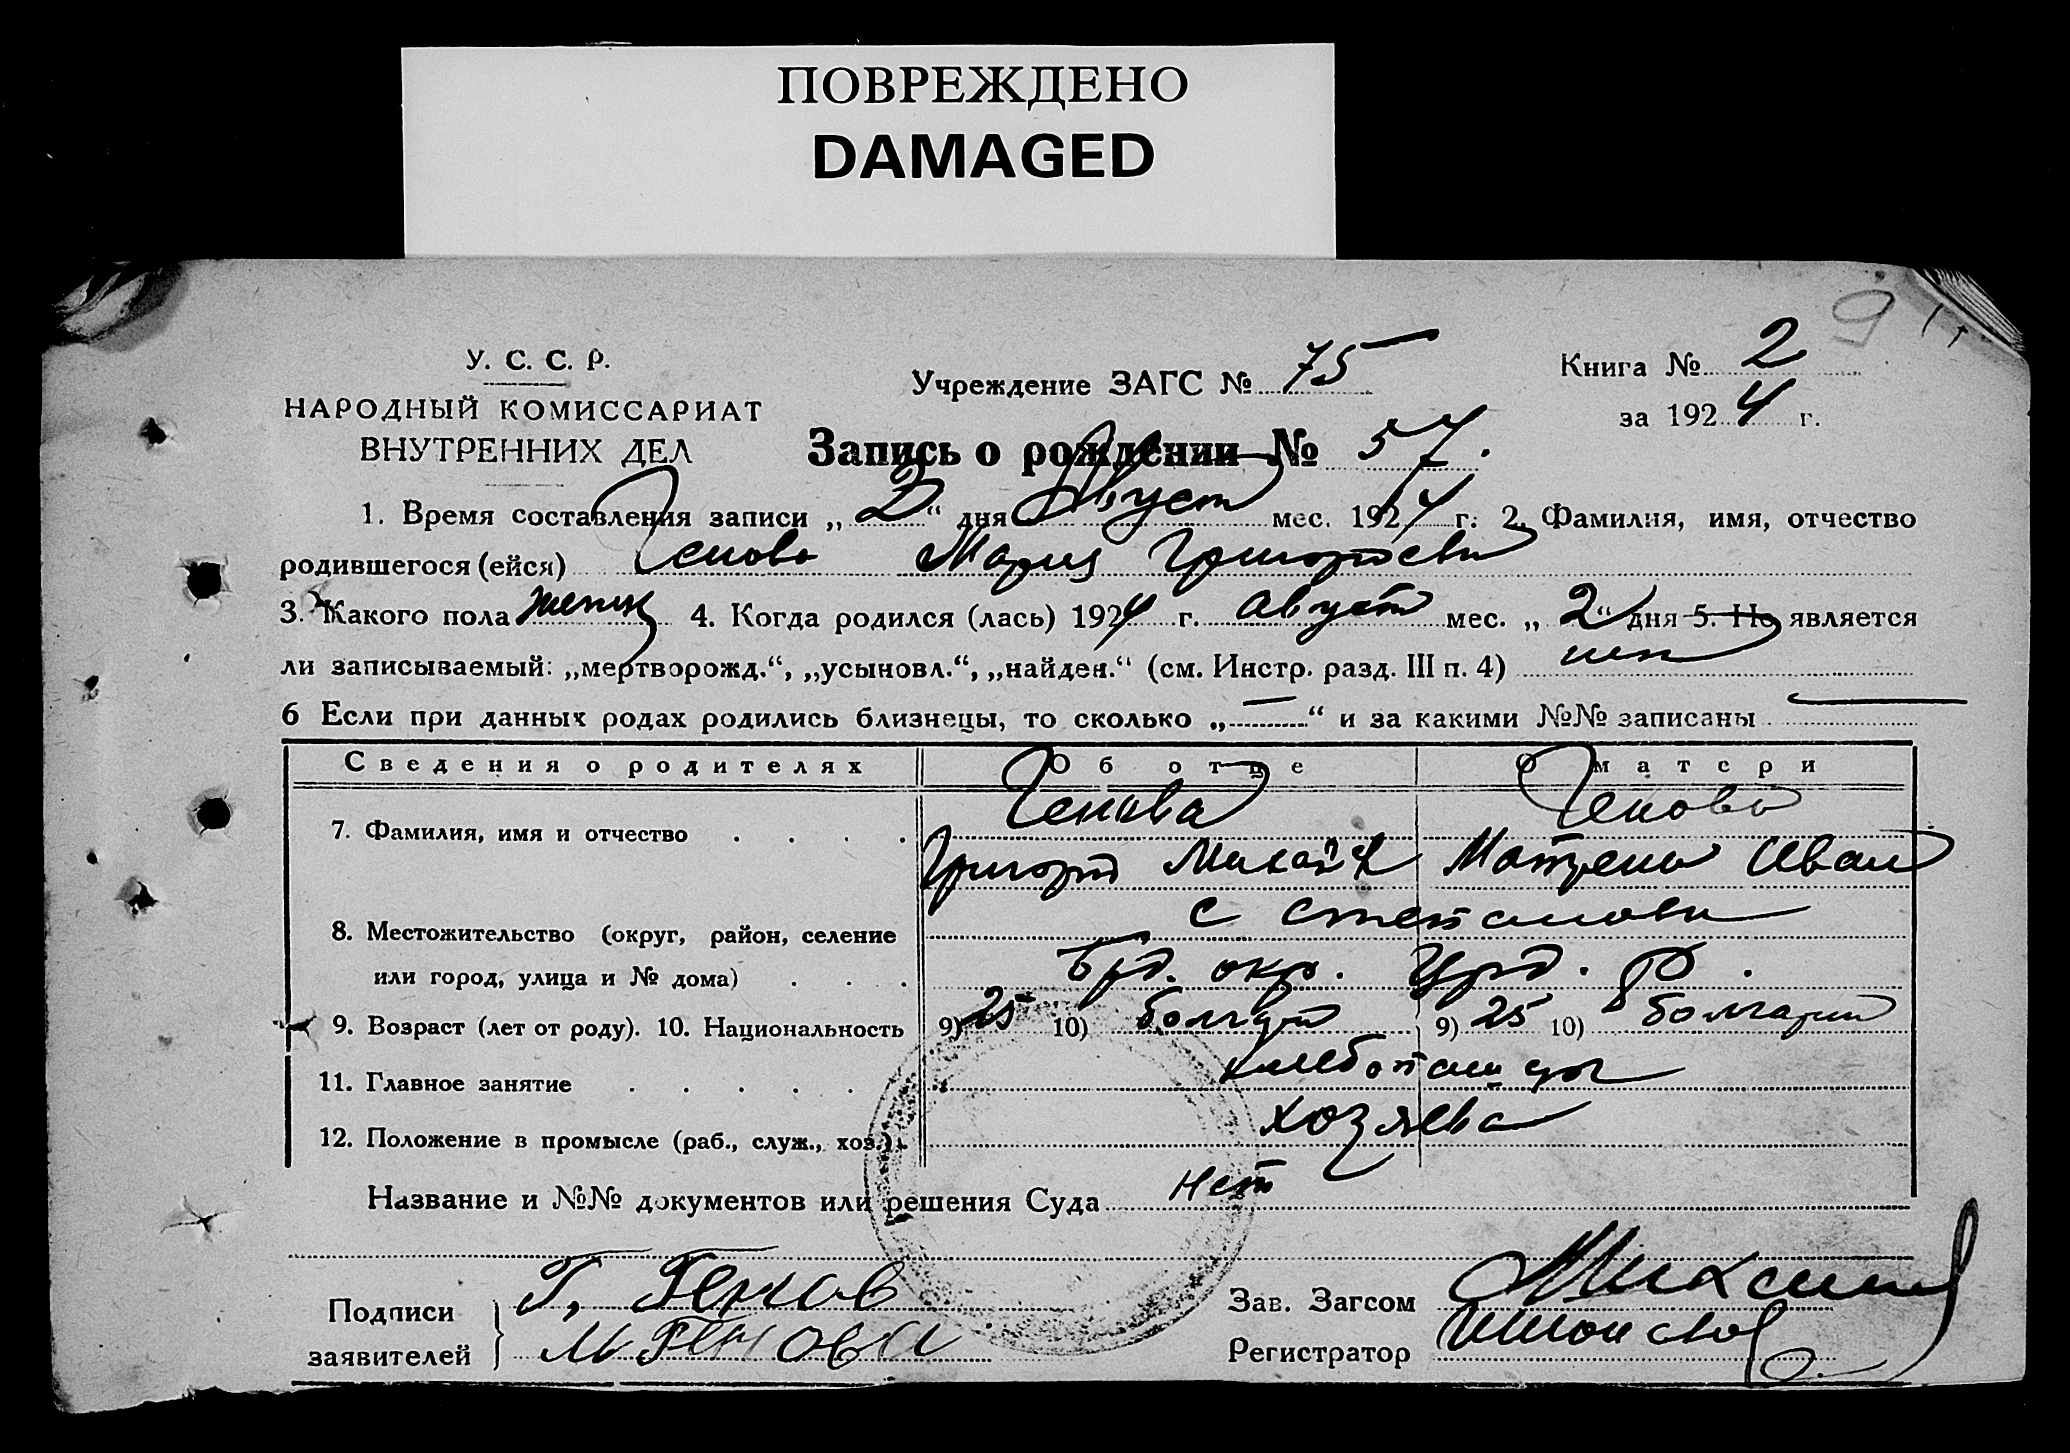 ПОВРЕЖДЕНО
DAMAGED
9
У. С. С. Р.
НАРОДНЫЙ КОМИССАРИАТ
ВНУТРЕННИХ ДЕЛ
Учреждение ЗАГС № 75
Книга № 2
за 1924 г.
Запись о рождении № 57.
1. Время составления записи „2“ дня Август мес. 1924 г. 2. Фамилия, имя, отчество
родившегося (ейся) Генова Мария Григорьевн
3. Какого пола женск 4. Когда родился (лась) 1924 г. Август мес. „2“ дня 5. Не является
ли записываемый: „мертворожд.“, „усыновл.“, „найден.“ (см. Инстр. разд. III п. 4) нет
6 Если при данных родах родились близнецы, то сколько „—“ и за какими №№ записаны —
Сведения о родителях Об отце О матери
7. Фамилия, имя и отчество . . . . Генова Генова
Григорий Михайл Матрена Иван
8. Местожительство (округ, район, селение с Степановк
или город, улица и № дома) . . . Брд. окр. Р.
9. Возраст (лет от роду). 10. Национальность 9) 25 10) болгар 9) 25 10) болгарин
11. Главное занятие . . . . . хлебопашцы
12. Положение в промысле (раб., служ., хоз.). хозяева
Название и №№ документов или решения Суда нет
Подписи
заявителей
Г. Генов
М Генова
Зав. Загсом
Регистратор